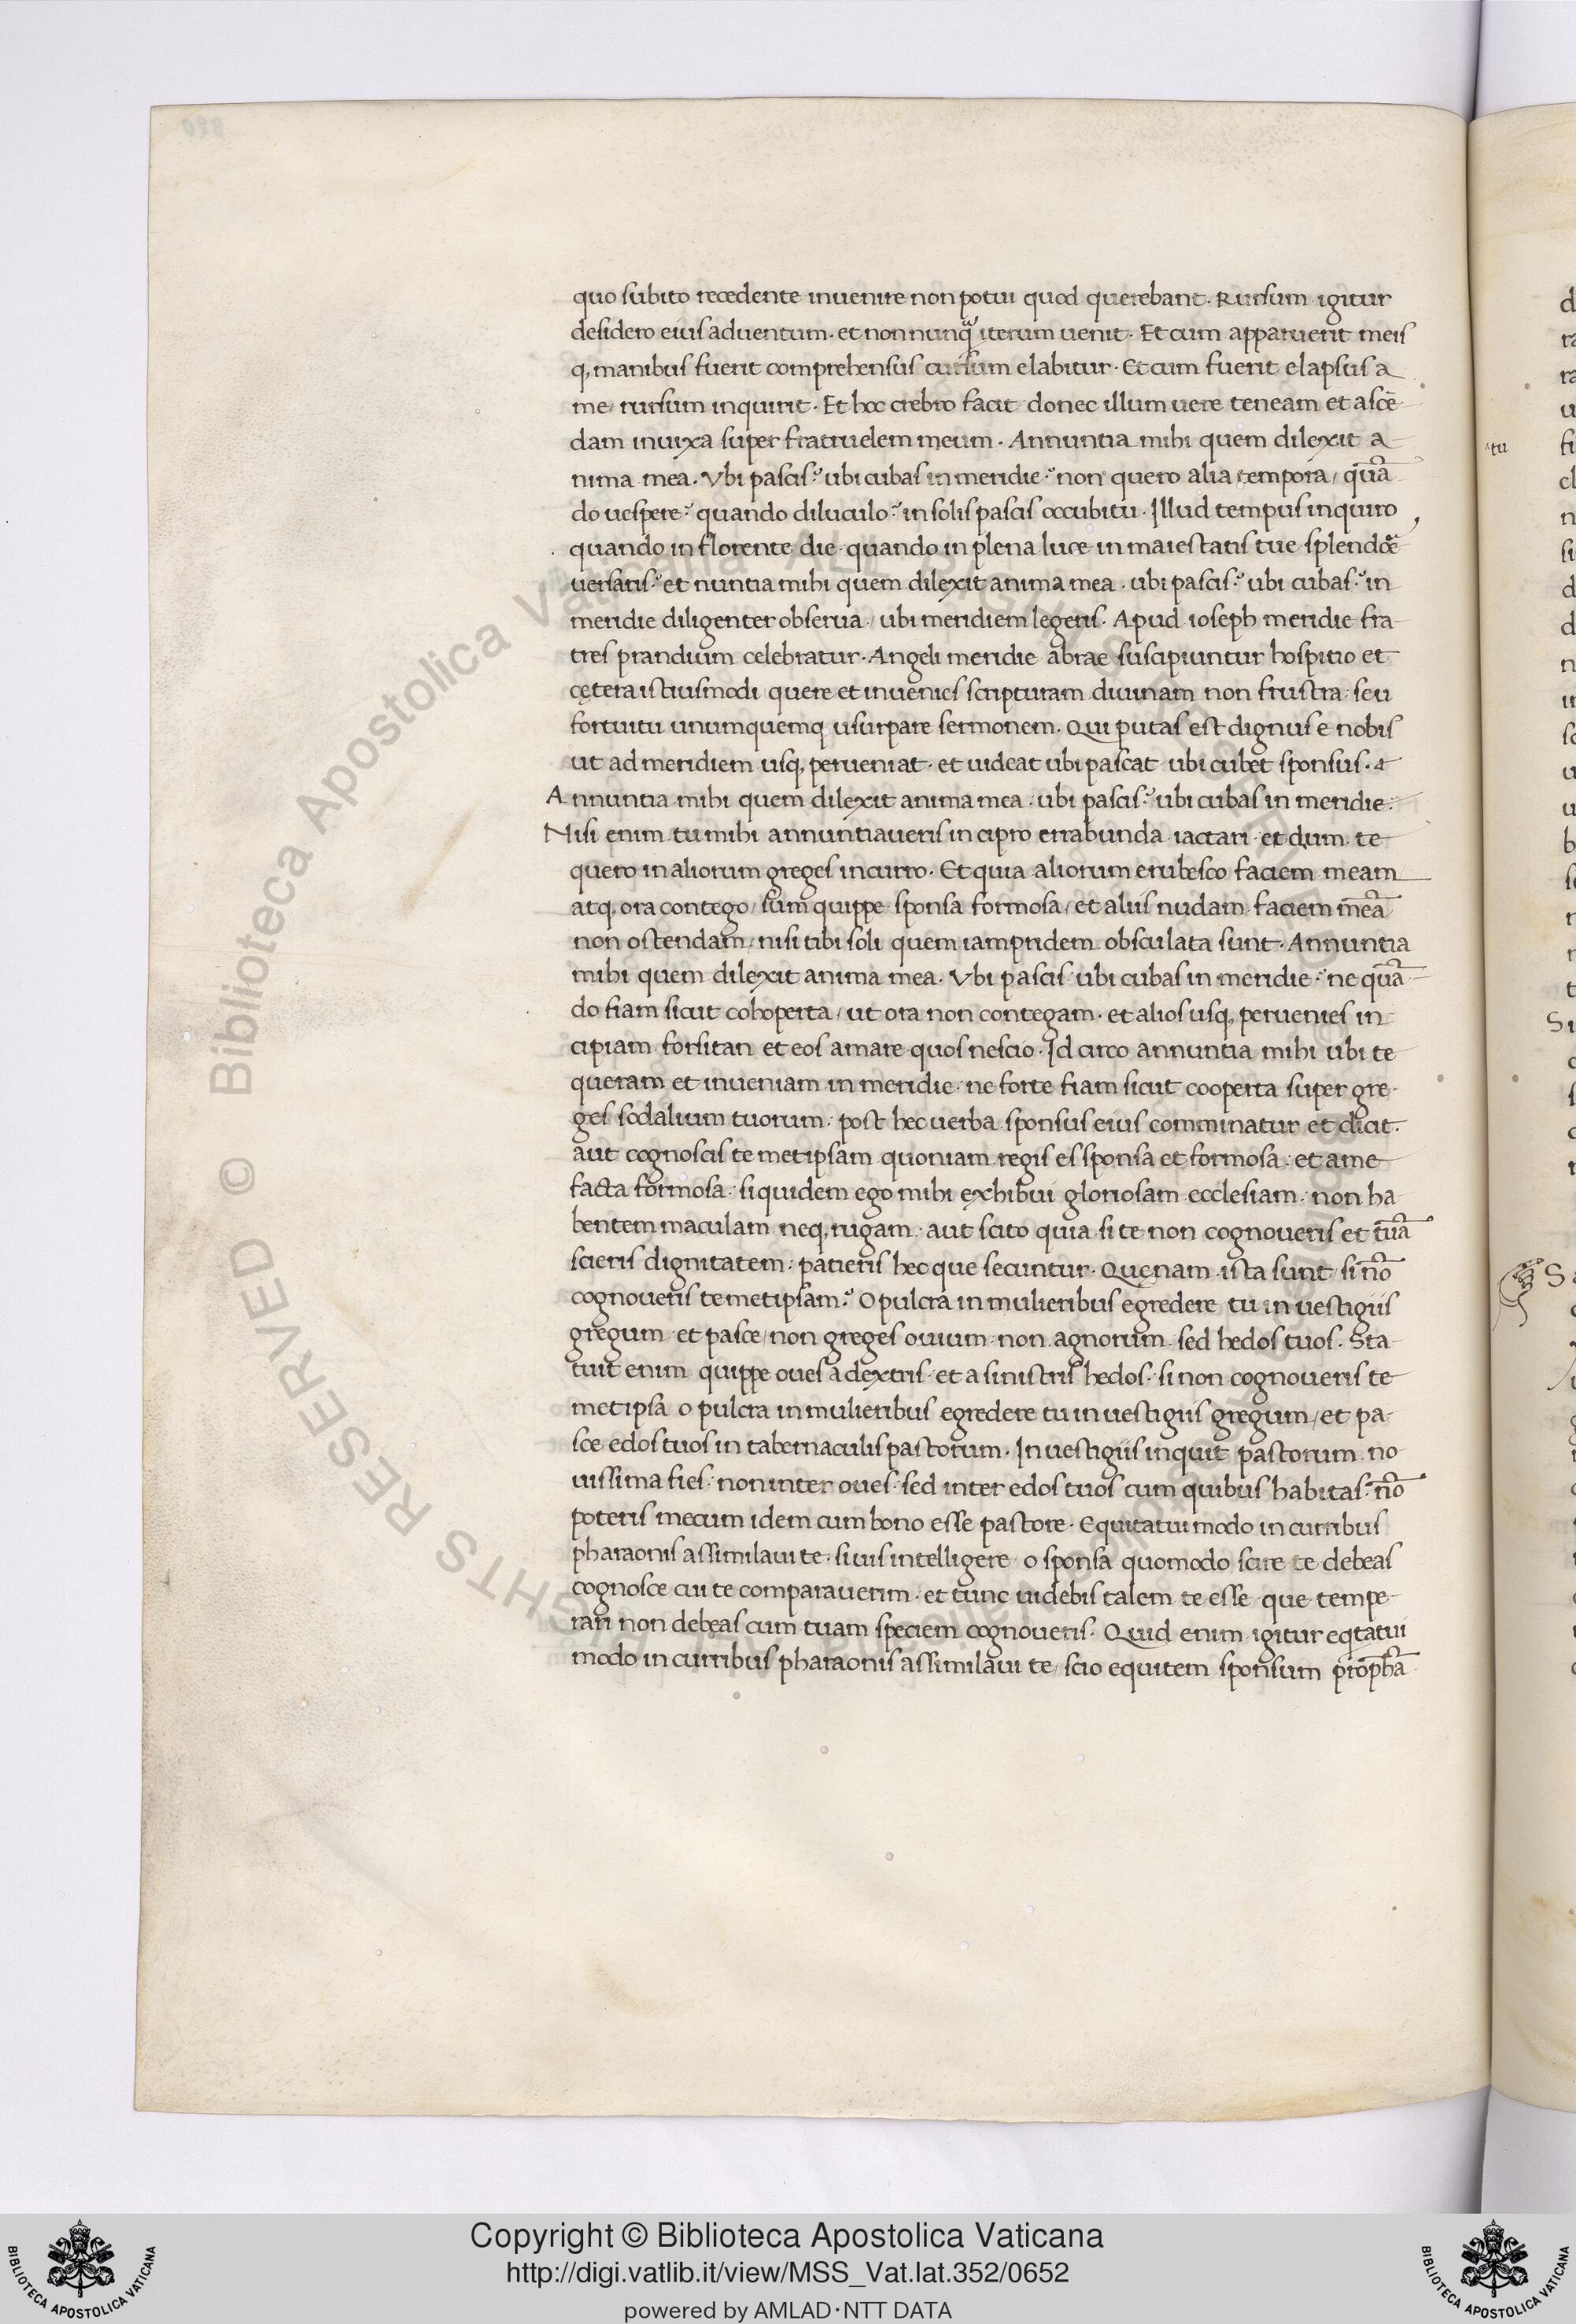 quo subito recedente inuenire non potui quod querebant. Rursum igitur
desidero eius aduentum. et non nunq̃ iterum uenit. Et cum apparuerit meis
q, manibus fuerit comprehensus cursum elabitur. Et cum fuerit elapsus a
me, rursum inquirit. Et hoc crebro facit donec illum uere teneam et ascē
dam inuixa super fratruelem meum. Annuntia mihi quem dilexit a
nima mea. Vbi pascis? ubi cubas in meridie? non quero alia tempora, quā
do uespere? quando diluculo? in solis pascis occubitu. Illud tempus inquiro
quando in florente die quando in plena luce in maiestatis tue splendoē
uersaris? et nuntia mihi quem dilexit anima mea. ubi pascis? ubi cubas? in
meridie diligenter obserua, ubi meridiem legeris. Apud ioseph meridie fra
tres prandium celebratur. Angeli meridie abrae suscipiuntur hospitio et
cętera istiusmodi quere et inuenies scripturam diuinam non frustra seu
fortuitu unumquemq usurpare sermonem. Qui putas est dignus e nobis
ut ad meridiem usq, perueniat. et uideat ubi pascat ubi cubet sponsus.
Annuntia mihi quem dilexit anima mea. ubi pascis? ubi cubas in meridie.
Nisi enim tu mihi annuntiaueris incipro errabunda iactari et dum te
quero in aliorum greges incurro. Et quia aliorum erubesco faciem meam
atq, ora contego, sum quippe sponsa formosa, et aliis nudam faciem meā
non ostendam, nisi tibi soli quem iampridem obsculata sunt. Annuntia
mihi quem dilexit anima mea. Vbi pascis ubi cubas in meridie? ne quā
do fiam sicut cohoperta, ut ora non contegam. et alios usq, peruenies in
cipiam forsitan et eos amare quos nescio. Id circo annuntia mihi ubi te
queram et inueniam in meridie ne forte fiam sicut cooperta super gre
ges sodalium tuorum. post hec uerba sponsus eius comminatur et dicit.
aut cognoscis te metipsam quoniam regis es sponsa et formosa. et ame
facta formosa. siquidem ego mihi exhibui gloriosam ecclesiam. non ha
bentem maculam neq, rugam. aut scito quia si te non cognoueris et tuā
scieris dignitatem. patieris hec que secuntur. Quenam ista sunt, si nō
cognoueris temetipsam? O pulcra in mulieribus egredere tu in uestigiis
gregum et pasce, non greges ouium non agnorum sed hedos tuos. Sta
tuit enim quippe oues a dextris et a sinistris hedos. si non cognoueris te
metipsā o pulcra in mulieribus egredere tu in uestigiis gregum, et pa
sce edos tuos in tabernaculis pastorum. In uestigiis inquit pastorum no
uissima fies. non inter oues sed inter edos tuos cum quibus habitas? nō
poteris mecum idem cum bono esse pastore. Equitatui modo in curribus
pharaonis assimilaui te. si uis intelligere o sponsa quomodo scire te debeas
cognosce cui te comparauerim. et tunc uidebis talem te esse que tempe
rari non debeas cum tuam speciem cognoueris. Quid enim igitur eqtatui
modo in curribus pharaonis assimilaui te, scio equitem sponsum prophā
tu
© Biblioteca Apostolica Vaticana ALL RIGHTS RESERVED
BIBLIOTECA APOSTOLICA VATICANA
Copyright © Biblioteca Apostolica Vaticana
http://digi.vatlib.it/view/MSS_Vat.lat.352/0652
powered by AMLAD · NTT DATA
BIBLIOTECA APOSTOLICA VATICANA